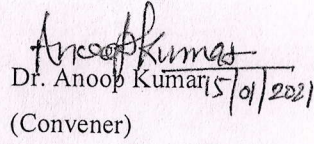 Anoop Kumar
Dr. Anoop Kumar 15/01/2021
(Convener)